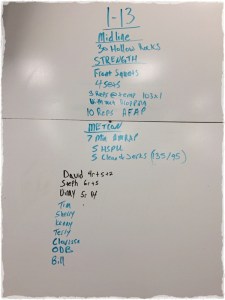 1-13
Midline
30 Hollow Rocks
STRENGTH
Front Squats
4 sets
3 Reps @ tempo
Without Stopping
10 Reps AFAP
METCON
7 Min AMRAP
5 HSPU
5 Clean & Jerks (135/95)
David
Steph 6r+5
Danny 5r
Tim
Shelly
Kenny
Terry
Clarissa
ODB
Bill